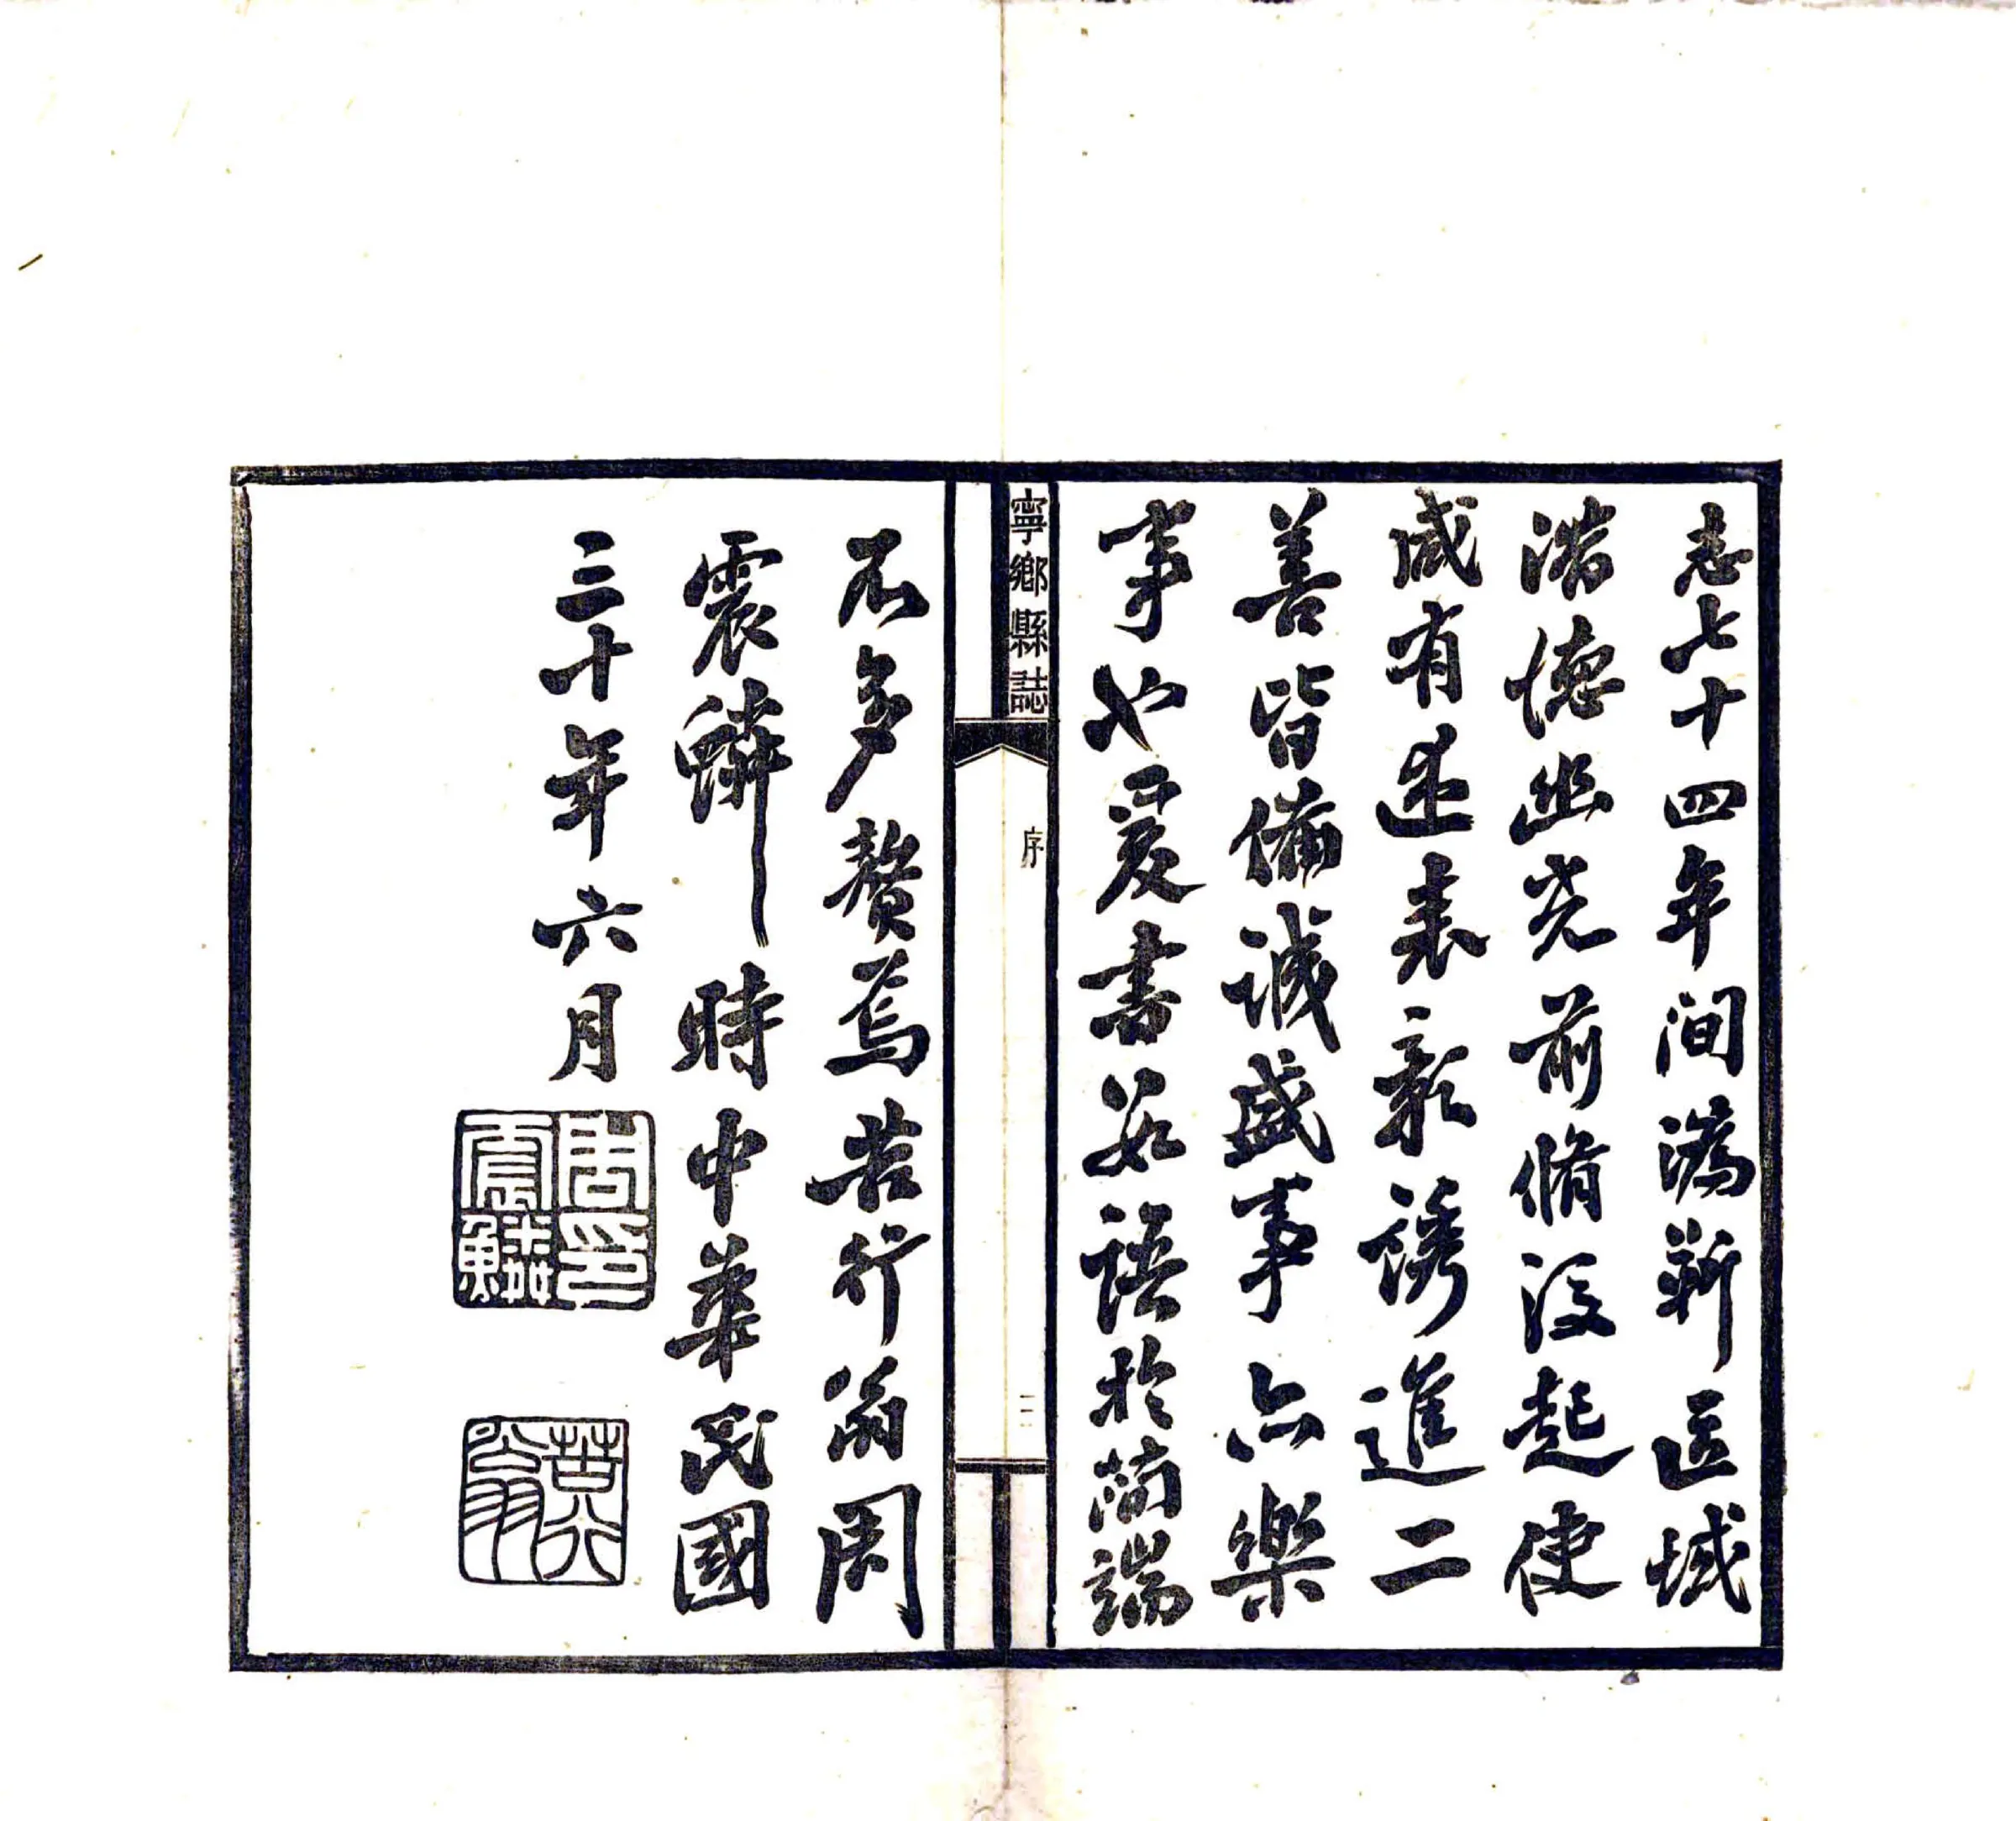 志七十四年間溈靳區域
潛德幽光前脩後起使
咸有述表彰誘進二
善皆備誠盛事亦樂
事也爰書數語於簡端
寧鄉縣誌
序
二
不多贅焉苦行翁周
震鱗 時中華民國
三十年六月
周印震鱗
苦行翁